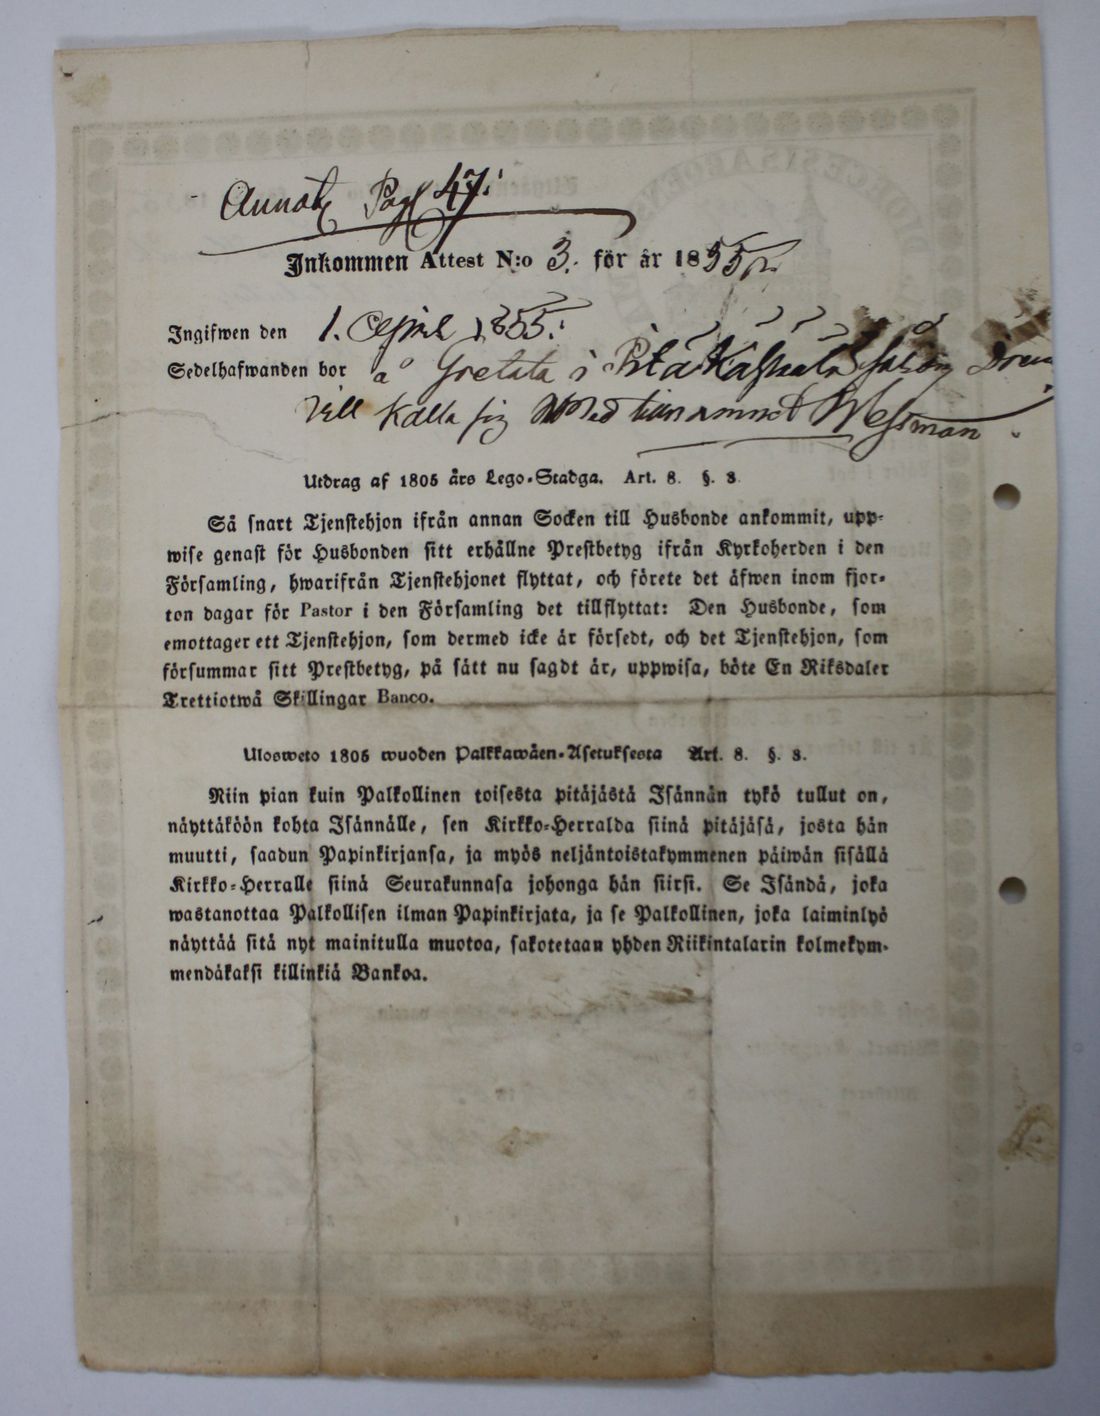 Annot. Pag 47.
Inkommen Attest N:o 3. för år 1855
Ingifwen den 1. April 1855.
Sedelhafwanden bor å i
vill kalla sig med tillnamnet Westman
Utdrag af 1805 års Lego-Stadga. Art. 8. §. 3.
Så snart Tjenstehjon ifrån annan Socken till Husbonde ankommit, upp-
wise genast för Husbonden sitt erhållne Prestbetyg ifrån Kyrkoherden i den
Församling, hwarifrån Tjenstehjonet flyttat, och förete det äfwen inom fjor-
ton dagar för Pastor i den Församling det tillflyttat: Den Husbonde, som
emottager ett Tjenstehjon, som dermed icke är försedt, och det Tjenstehjon, som
försummar sitt Prestbetyg, på sätt nu sagdt är, uppwisa, böte En Riksdaler
Trettiotwå Skillingar Banco.
Ulosweto 1805 wuoden Palkkawäen-Asetuksesta Art. 8. §. 3.
Niin pian kuin Palkollinen toisesta pitäjästä Isännän tykö tullut on,
näyttäköön kohta Isännälle, sen Kirkko-Herralda siinä pitäjäsä, josta hän
muutti, saadun Papinkirjansa, ja myös neljäntoistakymmenen päiwän sisällä
Kirkko-Herralle siinä Seurakunnasa johonga hän siirsi. Se Isändä, joka
wastanottaa Palkollisen ilman Papinkirjata, ja se Palkollinen, joka laiminlyö
näyttää sitä nyt mainitulla muotoa, sakotetaan yhden Riikintalarin kolmekym-
mendäkaksi killinkiä Bankoa.